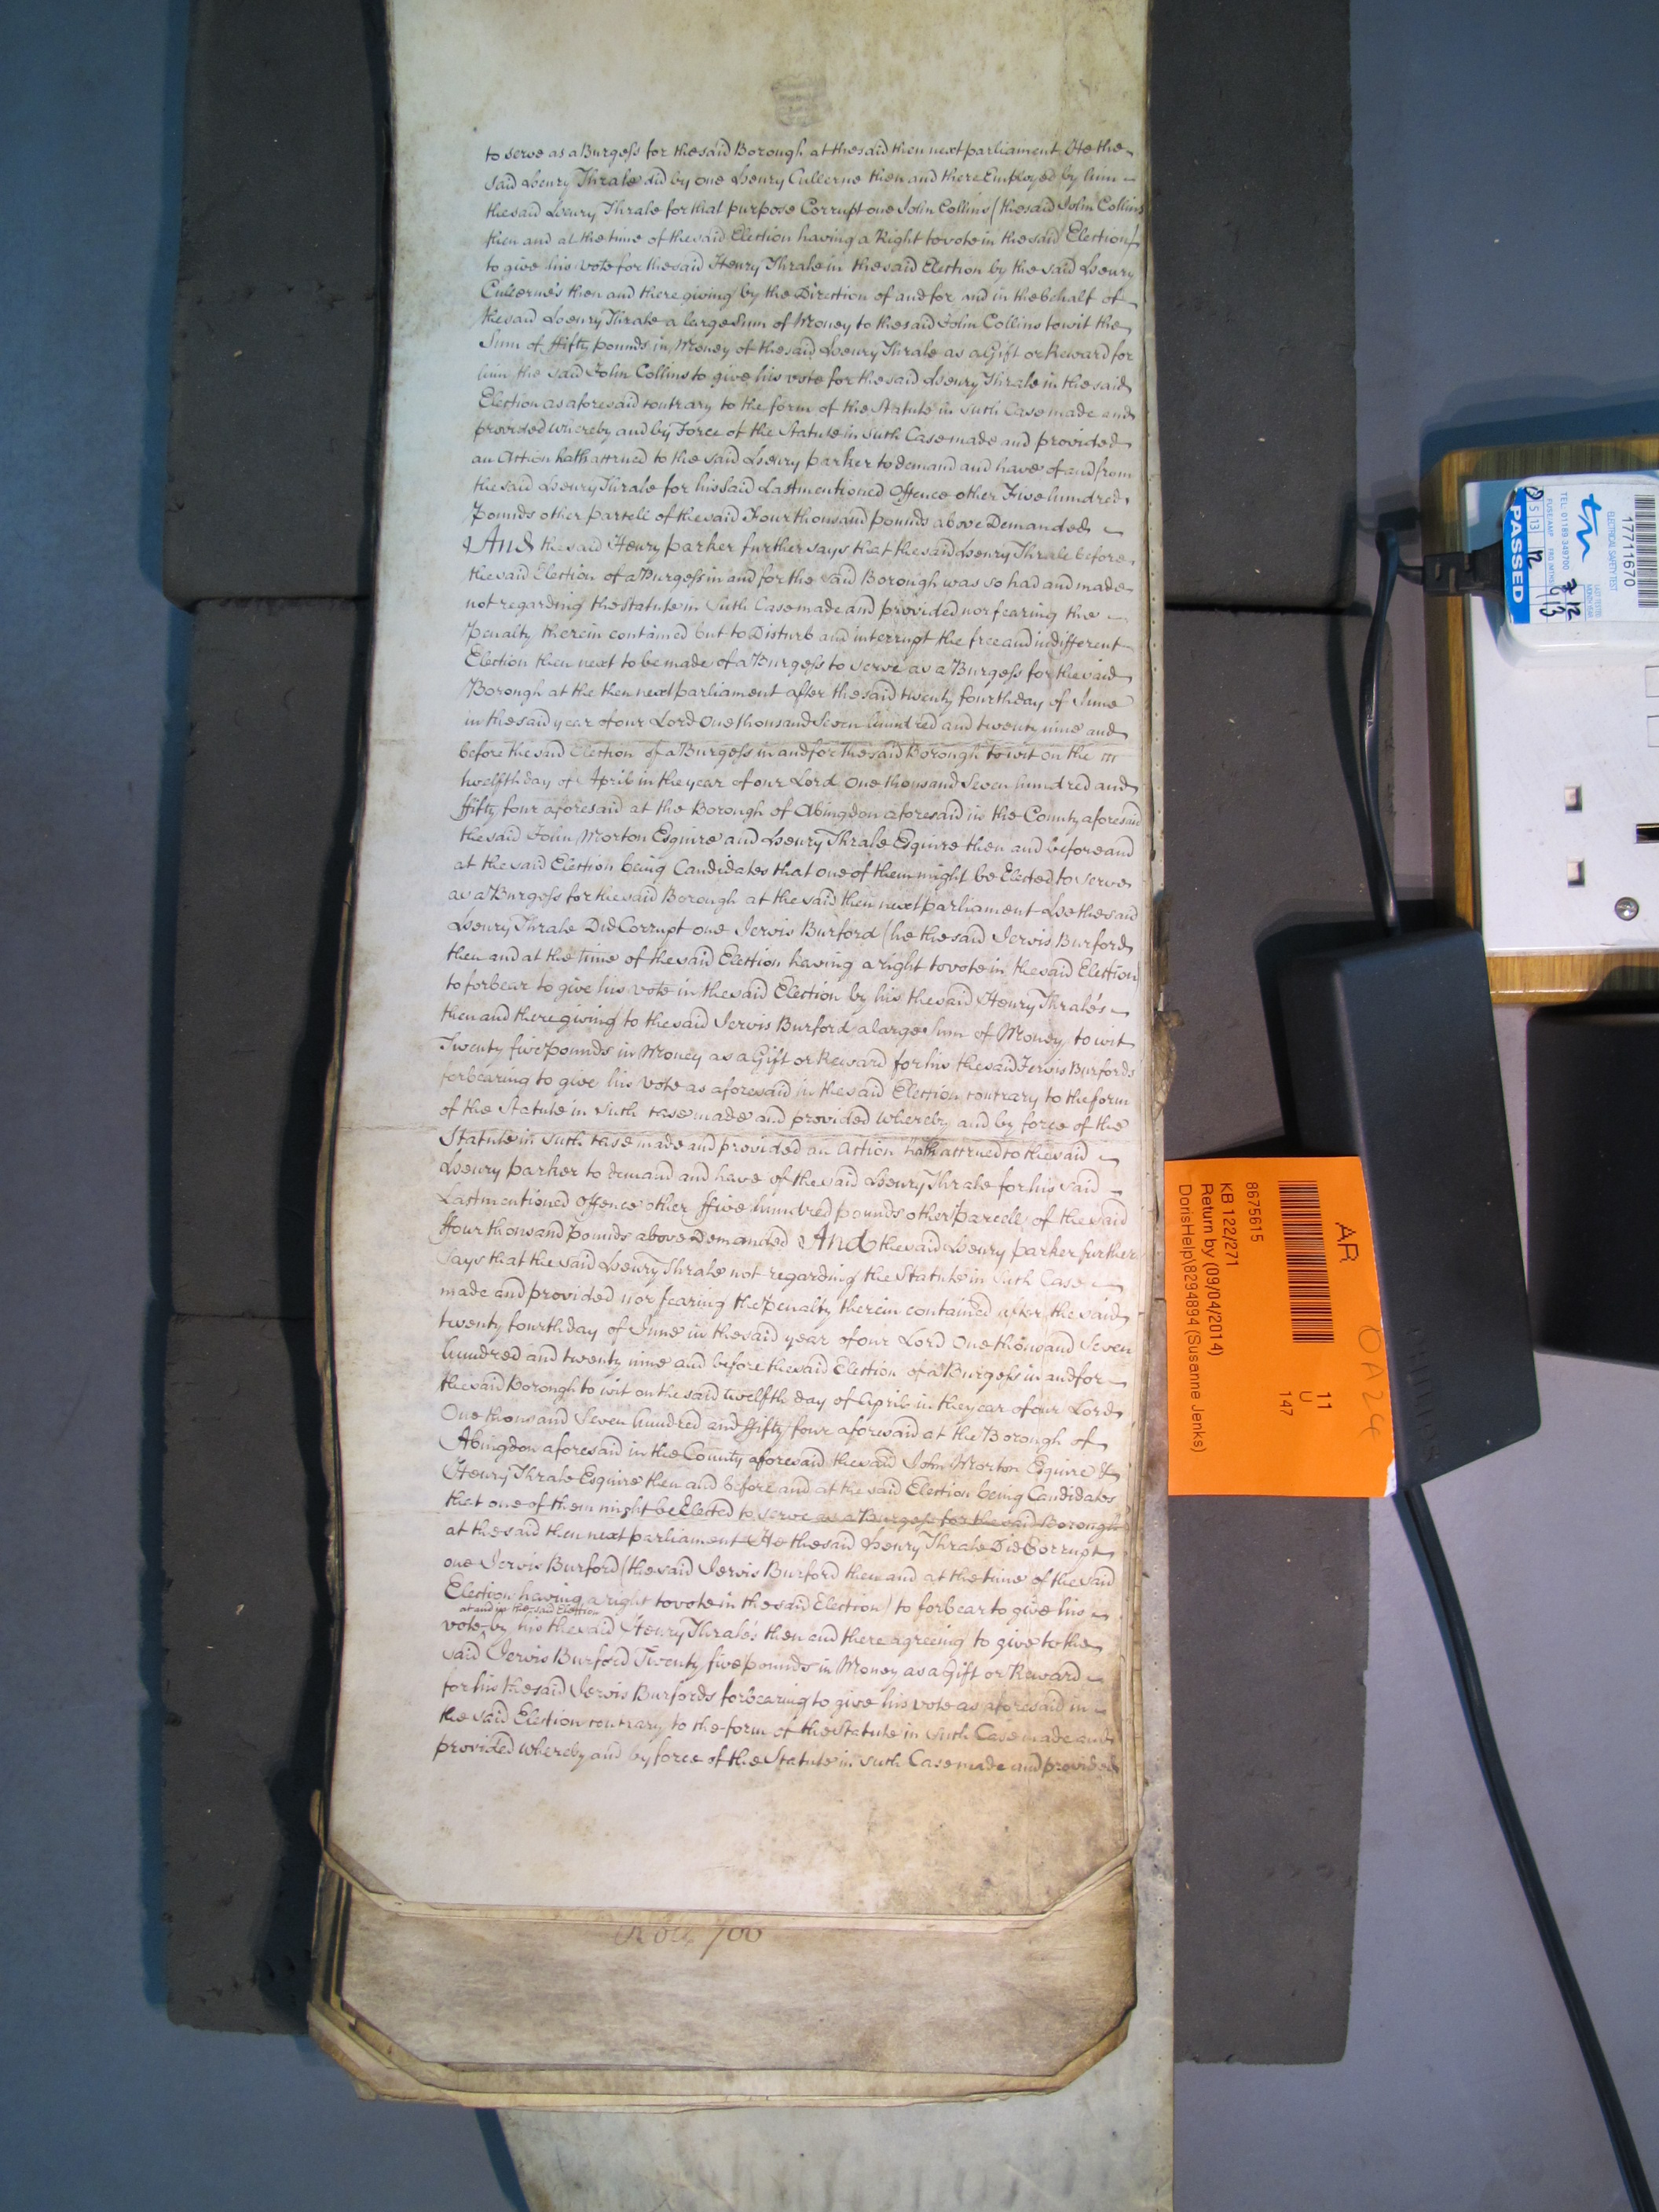 to serve as a Burgess for the said Borough at the said then next parliament He the
said Henry Thrale did by one Henry Cullerne then and there Employed by him
the said Henry Thrale for that purpose Corrupt one John Collins (the said John Collins
then and at the time of the said Election having a Right to vote in the said Election)
to give his vote for the said Henry Thrale in the said Election by the said Henry
Cullerne's then and there giving by the Direction of and for and in the behalf of
the said Henry Thrale a large Sum of Money to the said John Collins to wit the
Sum of ffifty pounds in Money of the said Henry Thrale as a Gift or Reward for
him the said John Collins to give his vote for the said Henry Thrale in the said
Election as aforesaid contrary to the form of the Statute in such Case made and
provided whereby and by Force of the Statute in such Case made and provided
an Action hath accrued to the said Henry parker to demand and have of and from
the said Henry Thrale for his said Last mentioned Offence other Five hundred
Pounds other parcell of the said Four thousand pounds above Demanded
And the said Henry parker further says that the said Henry Thrale before
the said Election of a Burgess in and for the said Borough was so had and made
not regarding the statute in Such Case made and provided nor fearing the
Penalty therein contained but to Disturb and interrupt the free and indifferent
Election then next to be made of a Burgess to serve as a Burgess for the said
Borough at the then next parliament after the said twenty fourth day of June
in the said year of our Lord One thousand Seven hundred and twenty nine and
before the said Election of a Burgess in and for the said Borough to wit on the
twelfth day of April in the year of our Lord One thousand Seven hundred and
ffifty four aforesaid at the Borough of Abingdon aforesaid in the County aforesaid
the said John Morton Esquire and Henry Thrale Esquire then and before and
at the said Election being Candidates that one of them might be Elected to serve
as a Burgess for the said Borough at the said then next parliament He the said
Henry Thrale Did Corrupt one Jervis Burford (he the said Jervis Burford
then and at the time of the said Election having a right to vote in the said Election)
to forbear to give his vote in the said Election by his the said Henry Thrale's
then and there giving to the said Jervis Burford a large Sum of Money to wit
Twenty five Pounds in Money as a Gift or Reward for his the said Jervis Burfords
forbearing to give his vote as aforesaid in the said Election contrary to the form
of the Statute in such case made and provided whereby and by force of the
Statute in such case made and provided an Action hath accrued to the said
Henry parker to demand and have of the said Henry Thrale for his said
Last mentioned Offence other ffive hundred pounds other parcell of the said
ffour thousand Pounds above Demanded And the said Henry parker further
Says that the said Henry Thrale not regarding the Statute in such Case
made and provided nor fearing the Penalty therein contained after the said
twenty fourth day of June in the said year of our Lord One thousand Seven
hundred and twenty nine and before the said Election of a Burgess in and for
the said Borough to wit on the said twelfth day of April in the year of our Lord
One thousand Seven hundred and ffifty four aforesaid at the Borough of
Abingdon aforesaid in the County aforesaid the said John Morton Esquire &
Henry Thrale Esquire then and before and at the said Election being Candidates
that one of them might be Elected to serve as a Burgess for the said Borough
at the said then next parliament He the said Henry Thrale Did Corrupt
one Jervis Burford (the said Jervis Burford then and at the time of the said
Election having a right to vote in the said Election) to forbear to give his
at and in the said Election
vote by his the said Henry Thrale's then and there agreeing to give to the
said Jervis Burford Twenty five pounds in Money as a Gift or Reward
for his the said Jervis Burfords forbearing to give his vote as aforesaid in
the said Election contrary to the form of the Statute in such Case made and
provided whereby and by force of the Statute in such Case made and provided
700
AR
8675615
KB 122/271
Return by (09/04/2014)
DorisHelp\8294894 (Susanne Jenks)
11
U
147
OA24
17711670
ELECTRICAL SAFETY TEST
PASSED